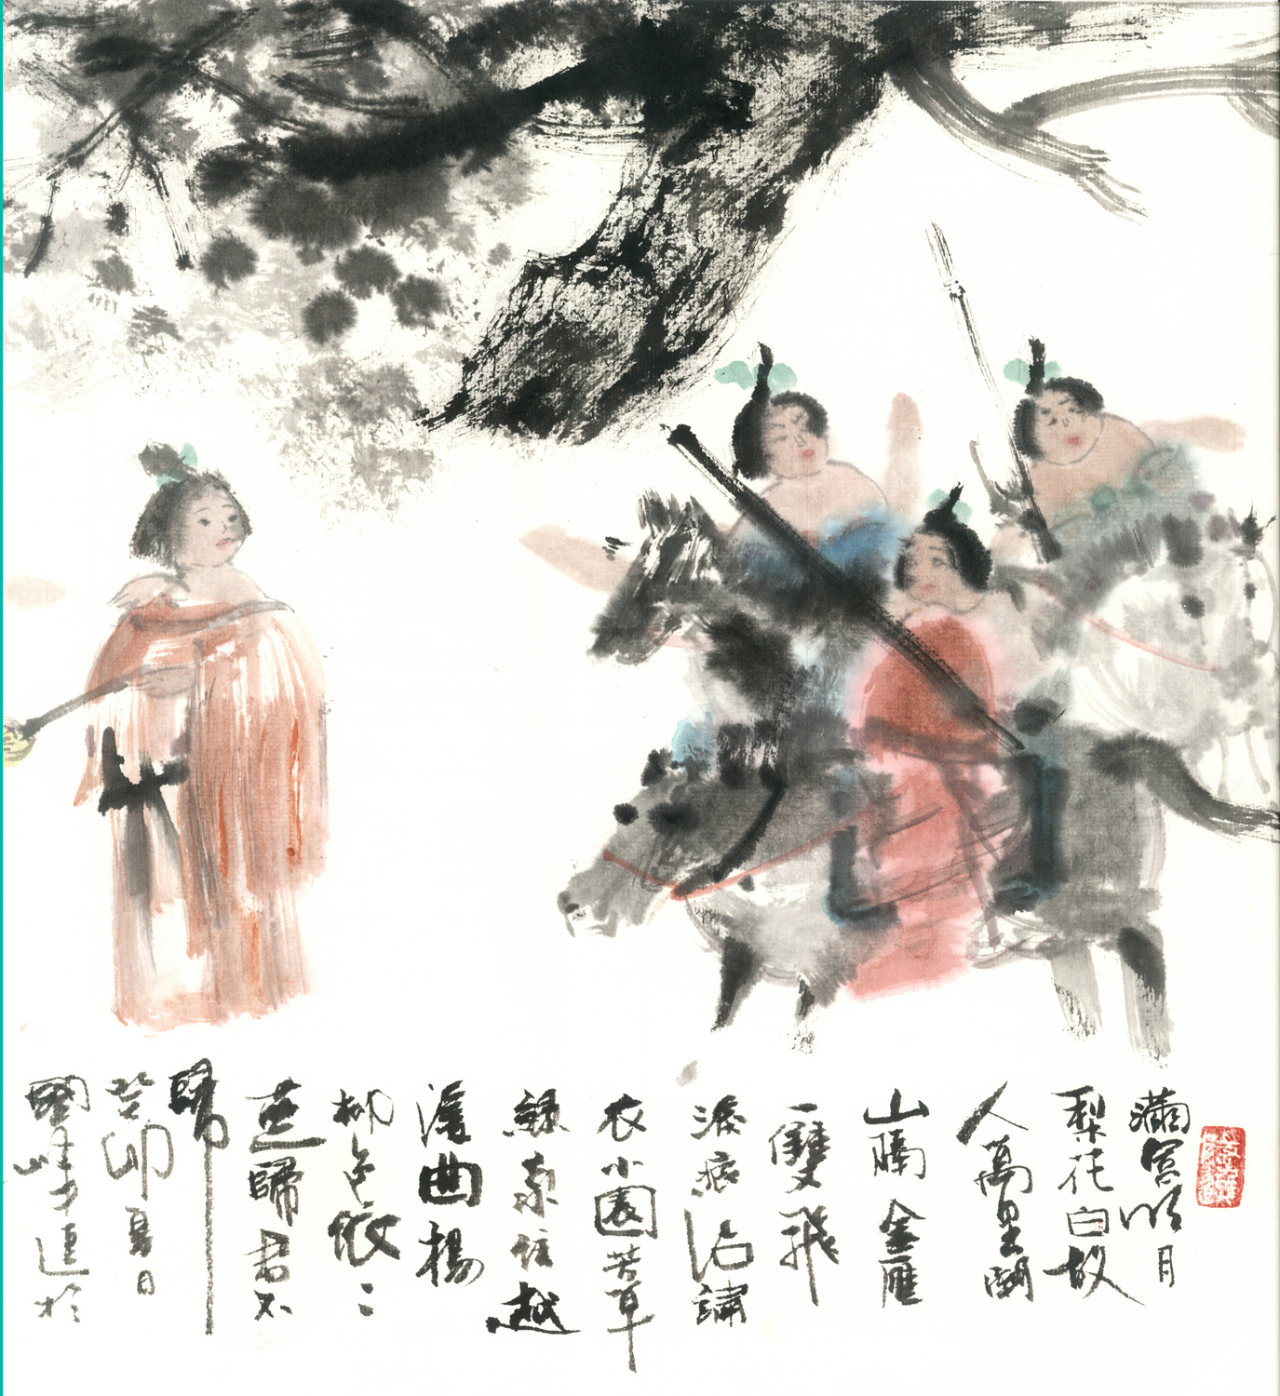 滿宮明月
梨花白故
人萬里關
山隔金雁
一雙飛
淚痕沾繡
衣小園芳草
綠家住越
溪曲楊
柳色依〻
燕歸君不
歸
癸卯夏日